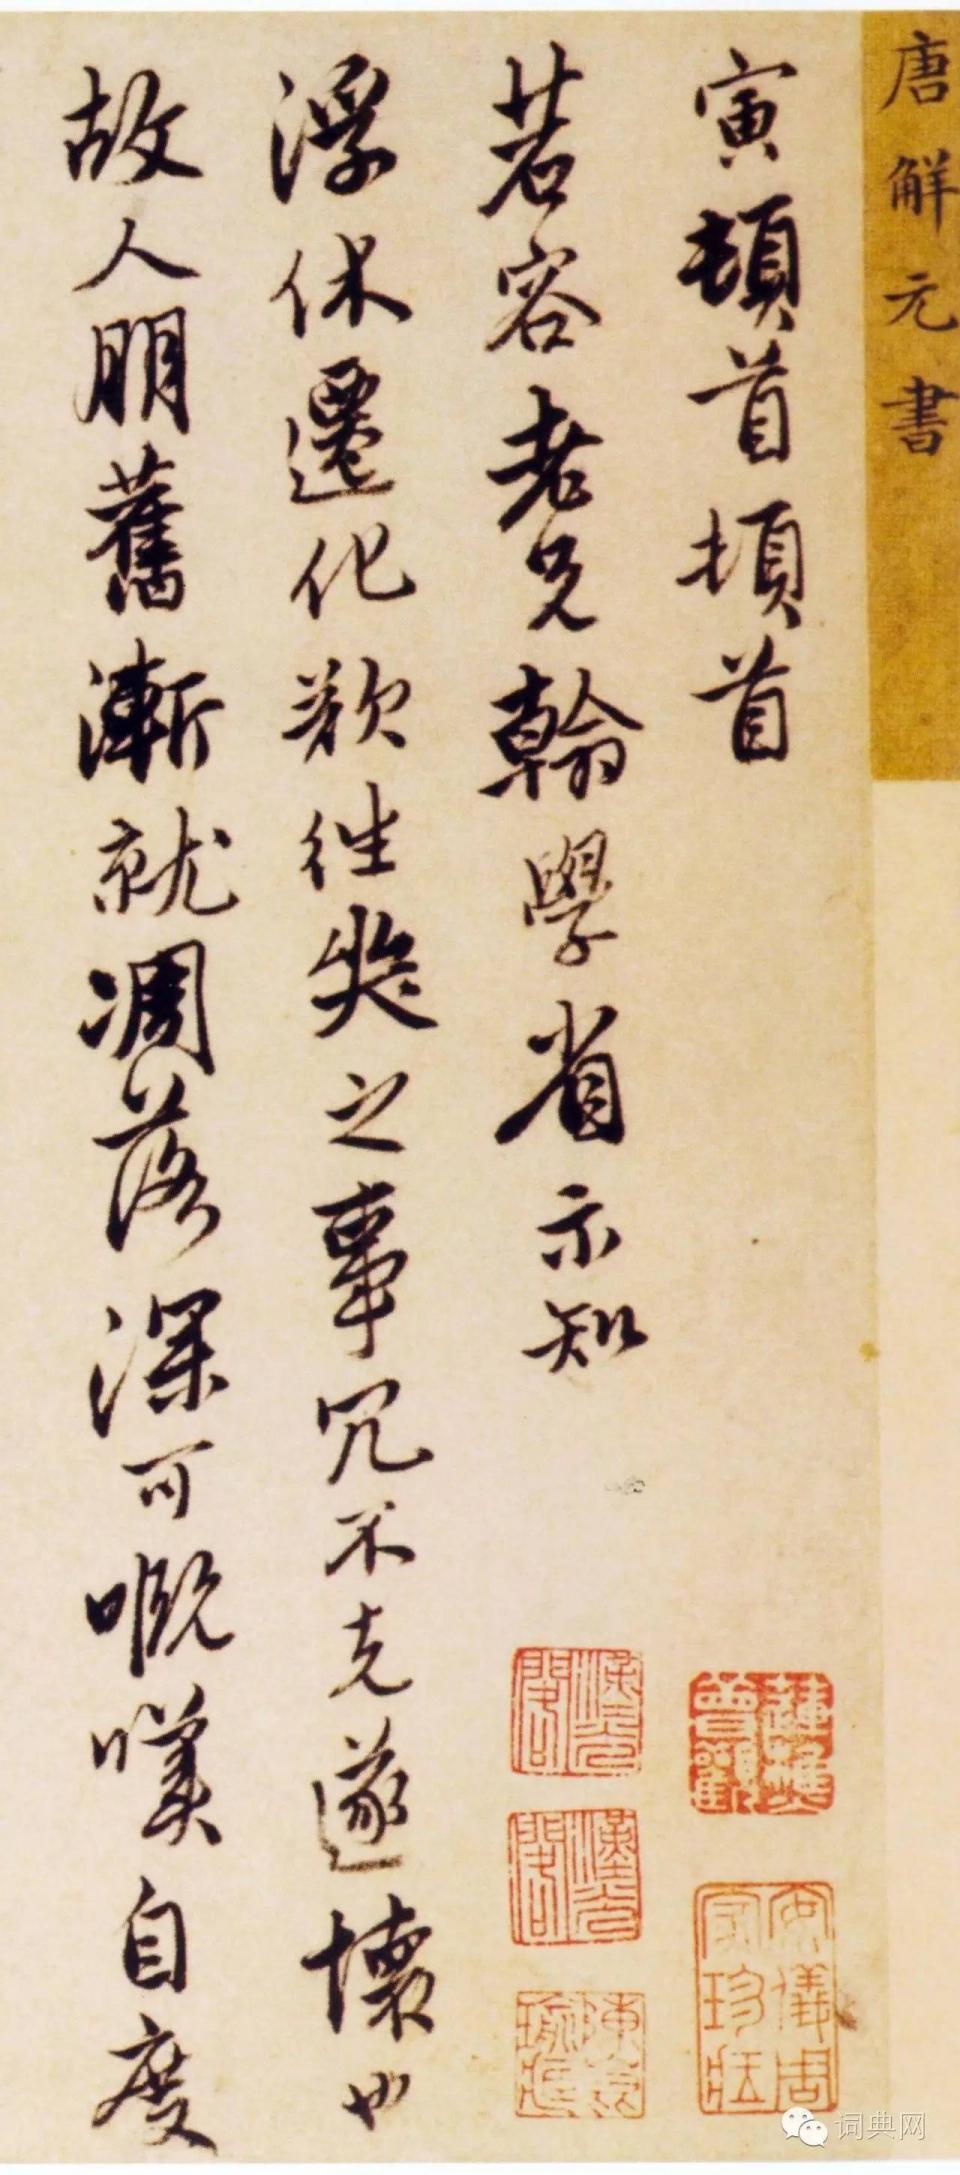 唐解元書
寅頓首頓首
若容老兄翰學省示知
浮休遷化欲往奠之事冗不克遂懷也
故人朋舊漸就凋落深可嘅嘆自度
安儀周家珍藏
词典网